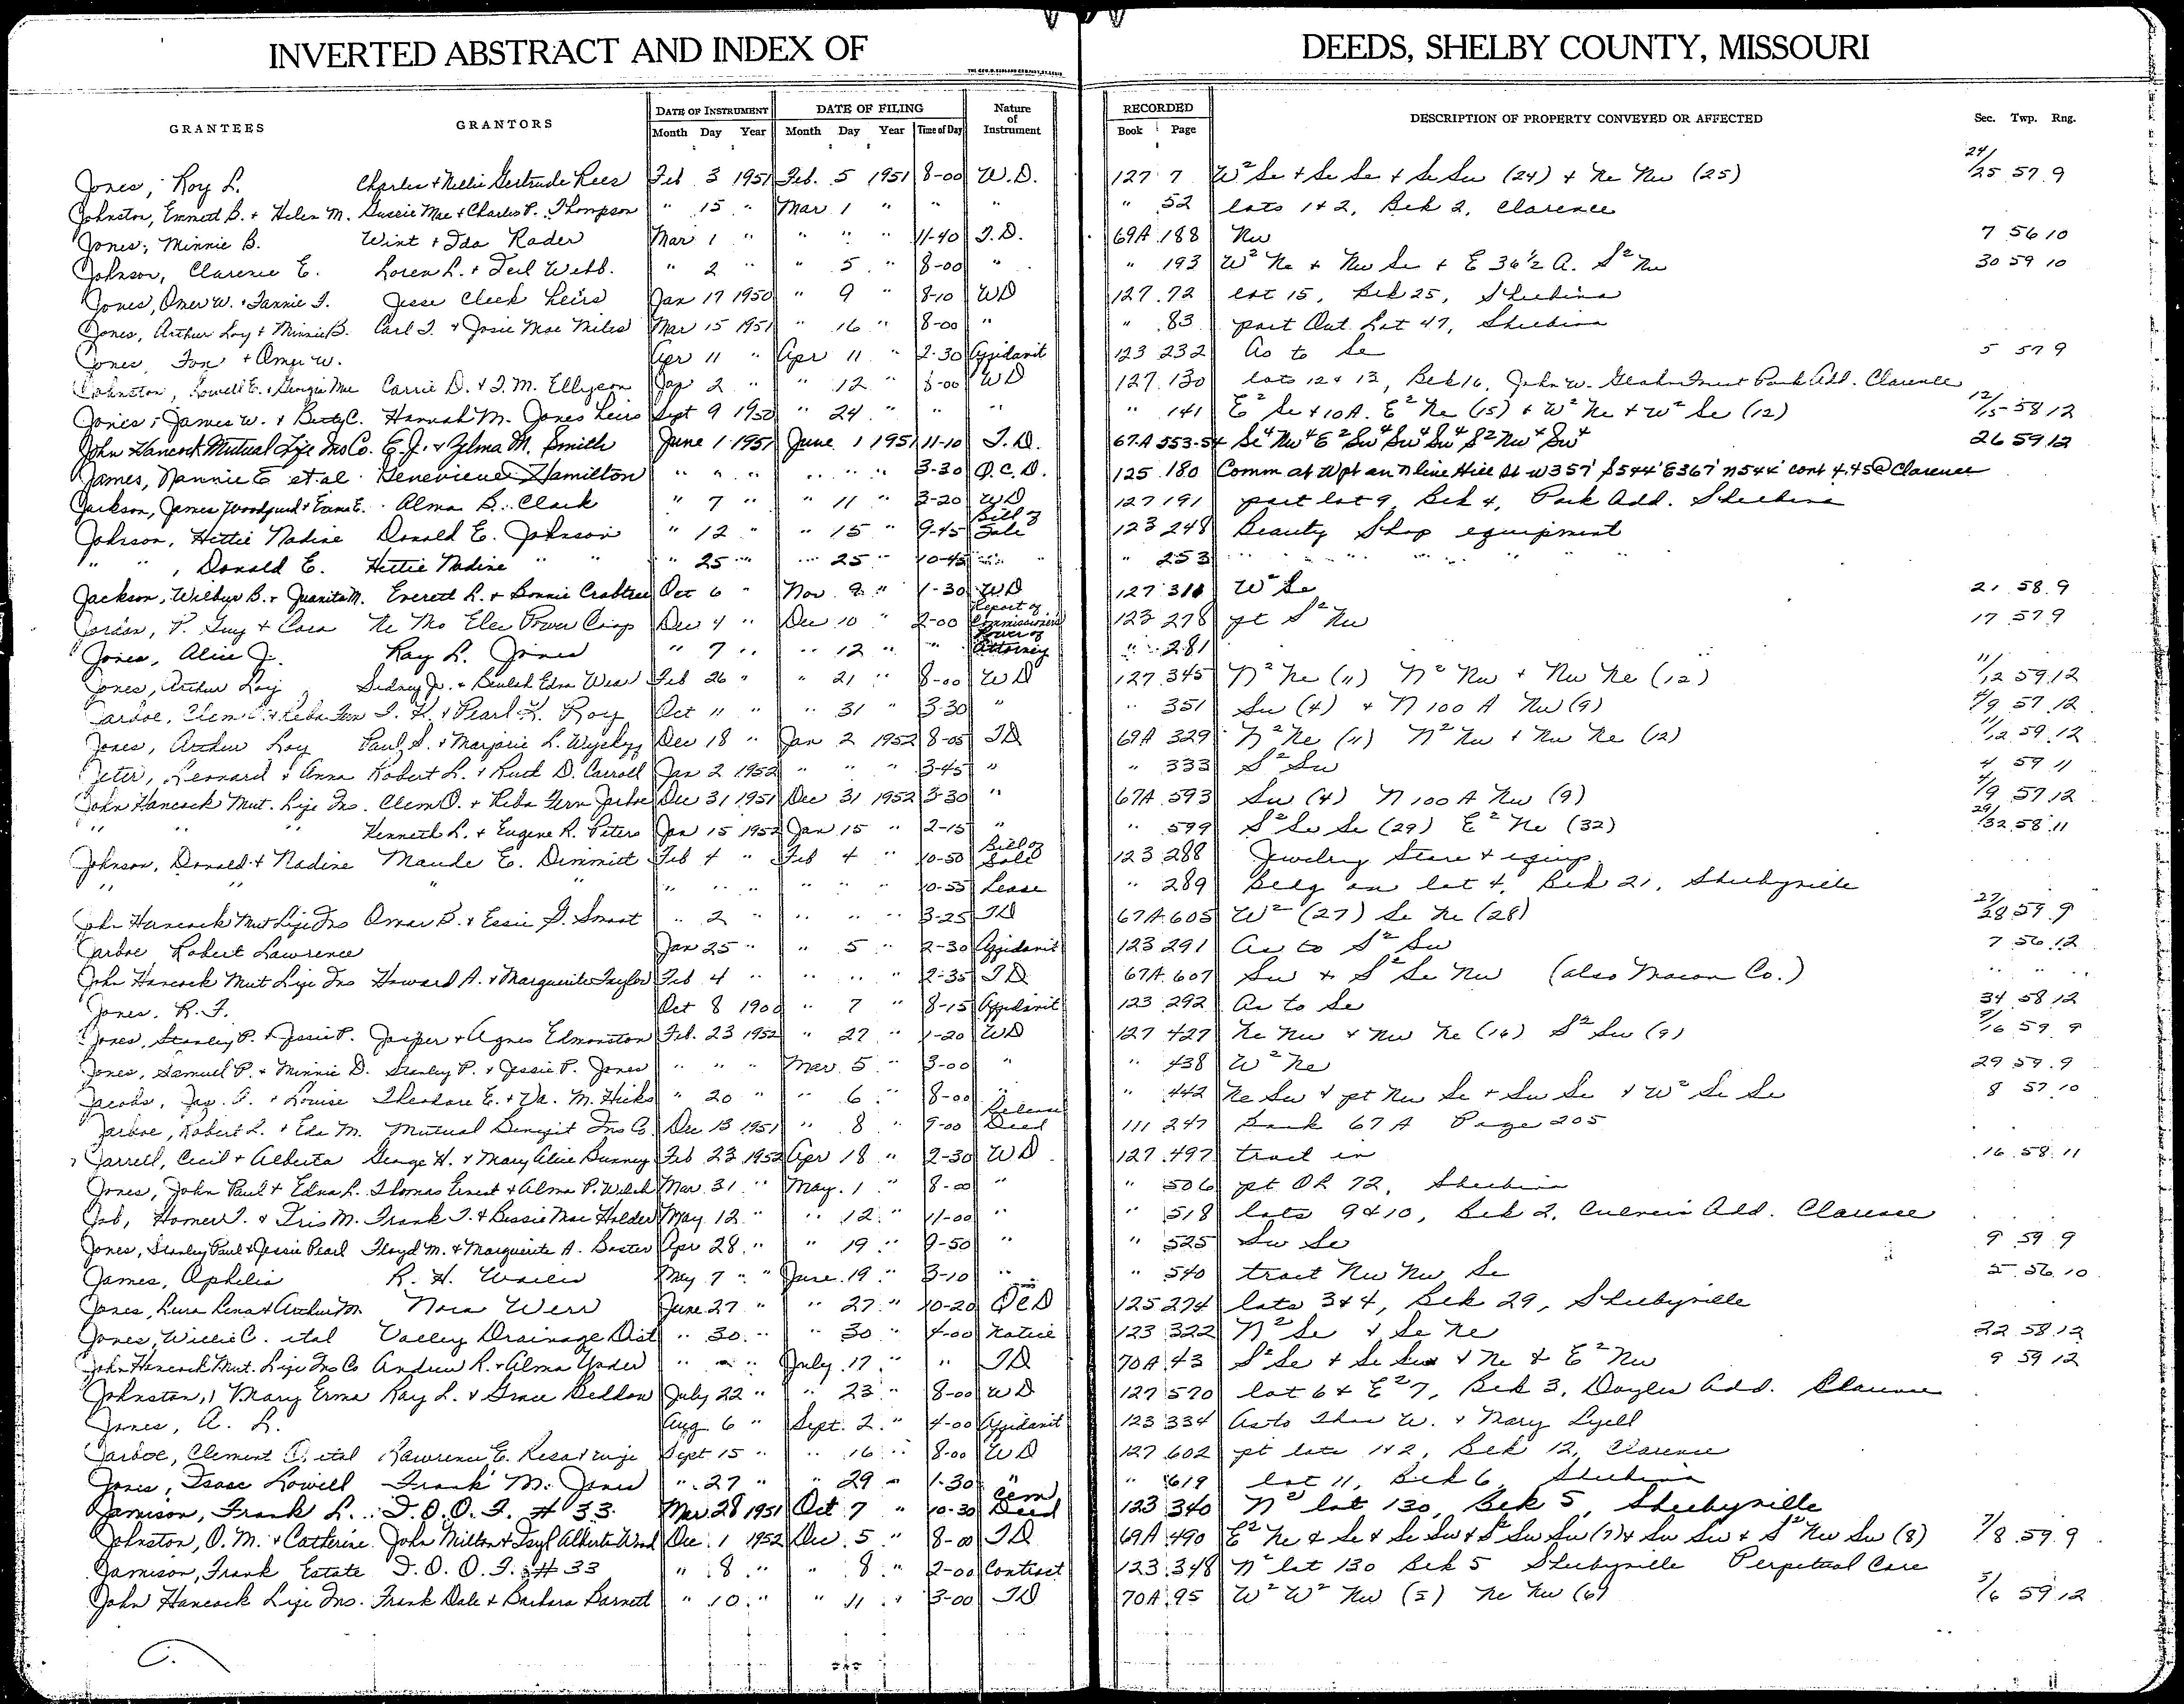 INVERTED ABSTRACT AND INDEX OF DEEDS, SHELBY COUNTY, MISSOURI
GRANTEES GRANTORS DATE OF INSTRUMENT DATE OF FILING Nature of Instrument RECORDED DESCRIPTION OF PROPERTY CONVEYED OR AFFECTED Sec. Twp. Rng.
Month Day Year Month Day Year Time of Day Book Page
Jones, Roy L. Charles + Nellie Gertrude Rees Feb 3 1951 Feb. 5 1951 8-00 W.D. 127 7 W² Se + Se Se + Se Sw (24) + Ne Nw (25) 24/25 57 9
Johnston, Emmett B. + Helen M. Gussie Mae + Charles P. Thompson " 15 " Mar 1 " " " " 52 lots 1+2, Blk 2, Clarence
Jones, Minnie B. Wint + Ida Rader Mar 1 " " " " 11-40 T.D. 69A 188 Nw 7 56 10
Johnson, Clarence E. Loren L. + Teil Webb. " 2 " " 5 " 8-00 " " 193 W² Ne + Nw Se + E 36½ A. S² Nw 30 59 10
Jones, Omer W. + Fannie F. Jesse Cleek heirs Jan 17 1950 " 9 " 8-10 WD 127 72 lot 15, Blk 25, Shelbina
Jones, Arthur Loy + Minnie B. Carl T. + Josie Mae Miles Mar 15 1951 " 16 " 8-00 " " 83 part Out Lot 47, Shelbina
Jones, Fon + Omer W. Apr 11 " Apr 11 " 2-30 Affidavit 123 232 As to Se 5 57 9
Johnston, Lowell E. + Georgia Mae Carrie D. + T. M. Ellyson Jan 2 " " 12 " 8-00 WD 127 130 lots 12 + 13, Blk 16, John W. Park Add. Clarence
Jones, James W. + Betty C. Hannah M. Jones heirs Sept 9 1950 " 24 " " " " 141 E² Se + 10 A. E² Ne (15) + W² Ne + W² Se (12) 12/15 58 12
John Hancock Mutual Life Ins Co. E. J. + Zelma M. Smith June 1 1951 June 1 1951 11-10 T.D. 67A 553-54 Se⁴ Nw⁴ E² Sw⁴ Sw⁴ Sw⁴ S² Nw⁴ Sw⁴ 26 59 12
James, Nannie E et al Genevieve Hamilton " " " " " " 3-30 Q.C.D. 125 180 Comm at W pt on N line Hill St W 357' S 544' E 367' N 544' cont 4.45@ Clarence
Jackson, James Woodford + Emma E. Alma B. Clark " 7 " " 11 " 3-20 WD 127 191 part lot 9, Blk 4, Park Add. Shelbina
Johnson, Hettie Nadine Donald E. Johnson " 12 " " 15 " 9-45 Bill of Sale 123 248 Beauty Shop equipment
" " , Donald E. Hettie Nadine " " " 25 " " 25 " 10-45 " " " 253 " " "
Jackson, Wilbur B. + Juanita M. Everett L. + Bonnie Crabtree Oct 6 " Nov 9 " 1-30 WD 127 311 W² Se 21 58 9
Jordan, P. Guy + Cora Ne Mo Elec Power Coop Dec 4 " Dec 10 " 2-00 Report of Commissioners 123 278 pt S² Nw 17 57 9
Jones, Alice J. Ray L. Jones " 7 " " 12 " " Power of Attorney " 281
Jones, Arthur Loy Sidney Jr. + Beulah Edna Wear Feb 26 " " 21 " 8-00 WD 127 345 N² Ne (11) N² Nw + Nw Ne (12) 11/12 59 12
Jarboe, Clem O. + Reba Fern T. H. + Pearl K. Roy Oct 11 " " 31 " 3-30 " " 351 Sw (4) + N 100 A Nw (9) 4/9 57 12
Jones, Arthur Loy Paul S. + Marjorie L. Dec 18 " Jan 2 1952 8-05 TD 69A 329 N² Ne (11) N² Nw + Nw Ne (12) 11/12 59 12
Jeter, Leonard + Anna Robert L. + Ruth D. Carroll Jan 2 1952 " " " 3-45 " " 333 S² Sw 4 59 11
John Hancock Mut. Life Ins. Clem O. + Reba Fern Jarboe Dec 31 1951 Dec 31 1952 3-30 " 67A 593 Sw (4) N 100 A Nw (9) 4/9 57 12
" " " Kenneth L. + Eugene R. Peters Jan 15 1952 Jan 15 " 2-15 " " 599 S² Se Se (29) E² Ne (32) 29/32 58 11
Johnson, Donald + Nadine Maude E. Dimmitt Feb 4 " Feb 4 " 10-50 Bill of Sale 123 288 Jewelry Store + equip.
" " " " " " " " " 10-55 Lease " 289 Bldg on lot 4, Blk 21, Shelbyville
John Hancock Mut Life Ins Omar B. + Essie G. Smoot " 2 " " " " 3-25 TD 67A 605 W² (27) Se Ne (28) 27/28 59 9
Jarboe Robert Lawrence Jan 25 " " 5 " 2-30 Affidavit 123 291 As to S² Sw 7 56 12
John Hancock Mut Life Ins Howard A. + Marguerite Taylor Feb 4 " " " " 2-35 TD 67A 607 Sw + S² Se Nw (also Macon Co.) " " "
Jones, R. F. Oct 8 1900 " 7 " 8-15 Affidavit 123 292 As to Se 34 58 12
Jones, Stanley P. + Jessie P. Jasper + Agnes Edmonston Feb. 23 1952 " 27 " 1-20 WD 127 427 Ne Nw + Nw Ne (16) S² Sw (9) 9/16 59 9
Jones, Samuel P. + Minnie D. Stanley P. + Jessie P. Jones " " " Mar 5 " 3-00 " " 438 W² Ne 29 59 9
Jacobs, Jas. A. + Louise Theodore E. + Va. M. Hicks " 20 " " 6 " 8-00 " " 442 Ne Sw + pt Nw Se + Sw Se + W² Se Se 8 57 10
Jarboe, Robert L. + Eda M. Mutual Benefit Ins Co. Dec 13 1951 " 8 " 9-00 Release Deed 111 247 Book 67 A Page 205
Jarrell, Cecil + Alberta George H. + Mary Alice Feb 23 1952 Apr 18 " 2-30 WD 127 497 tract in 16 58 11
Jones, John Paul + Edna L. Thomas Ernest + Alma P. Welch Mar. 31 " May 1 " 8-00 " " 506 pt OL 72, Shelbina
Job, Homer T. + Iris M. Frank T. + Bessie Mae Holder May 12 " " 12 " 11-00 " " 518 lots 9 + 10, Blk 2, Culver's Add. Clarence
Jones, Stanley Paul + Jessie Pearl Floyd M. + Marguerite A. Baxter Apr 28 " " 19 " 9-50 " " 525 Sw Se 9 59 9
James, Ophelia R. H. May 7 " June 19 " 3-10 " " 540 tract Nw Nw Se 5 56 10
Jones, Lura Lena + Archie M. Nora Werr June 27 " " 27 " 10-20 QCD 125 274 lots 3+4, Blk 29, Shelbyville
Jones, Willie C. etal Valley Drainage Dist " 30 " " 30 " 4-00 Notice 123 322 N² Se + Se Ne 22 58 12
John Hancock Mut. Life Ins Co Andrew R. + Alma Yoder " " " July 17 " " TD 70A 43 S² Se + Se Sw + Ne + E² Nw 9 59 12
Johnston, Mary Erma Ray L. + Grace Beddow July 22 " " 23 " 8-00 WD 127 570 lot 6 + E² 7, Blk 3, Doyles Add. Clarence
Jones, A. L. Aug 6 " Sept. 2 " 4-00 Affidavit 123 334 As to Thos W. + Mary Lyell
Jarboe, Clement O. etal Lawrence E. Resa + wife Sept 15 " " 16 " 8-00 WD 127 602 pt lots 1+2, Blk 12, Clarence
Jones, Isaac Lowell Frank M. Jones " 27 " " 29 " 1-30 " " 619 lot 11, Blk 6, Shelbina
Jamison, Frank L. I.O.O.F. # 33 Mar 28 1951 Oct 7 " 10-30 Cem Deed 123 340 N² lot 130, Blk 5, Shelbyville
Johnston, O. M. + Catherine John Milton + Alberta Wood Dec. 1 1952 Dec. 5 " 8-00 TD 69A 490 E² Ne + Se + Se Sw + S² Sw Sw (7) + Sw Sw + S² Nw Sw (8) 7/8 59 9
Jamison, Frank Estate I.O.O.F. # 33 " 8 " " 8 " 2-00 Contract 123 348 N² lot 130 Blk 5 Shelbyville Perpetual Care
John Hancock Life Ins. Frank Dale + Barbara Barnett " 10 " " 11 " 3-00 TD 70A 95 W² W² Nw (5) Ne Nw (6) 5/6 59 12